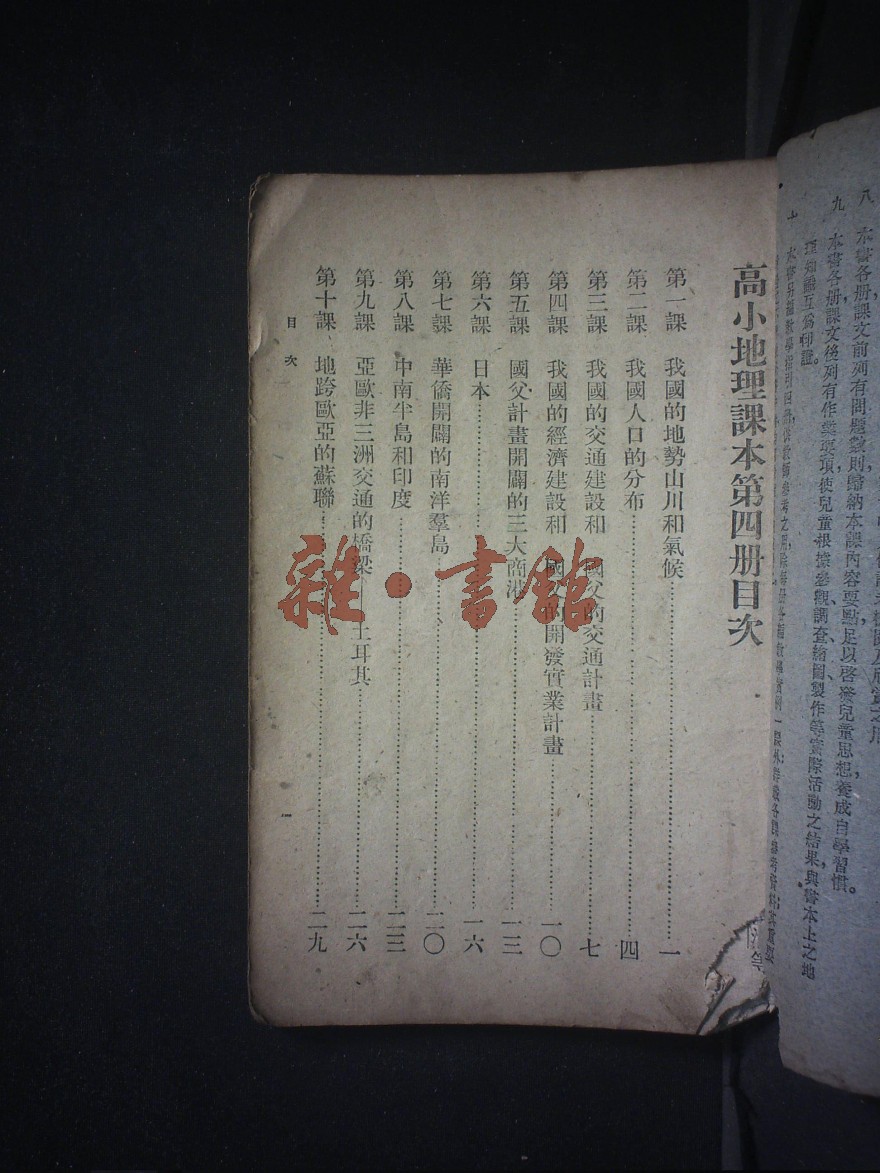 八　本書各册課文前列有問題數則歸納本課內容要點足以啓發兒童思想養成自學習慣。
九　本書各册課文後列有作業要項使兒童根據參觀、調查、繪圖、製作等實際活動之結果，與書本上之地
理知識互爲印證。
高小地理課本第四册目次
第一課　我國的地勢山川和氣候……一
第二課　我國人口的分布……四
第三課　我國的交通建設和　國父的交通計畫……七
第四課　我國的經濟建設和　國父的開發實業計畫……一〇
第五課　國父計畫開闢的三大商港……一三
第六課　日本……一六
第七課　華僑開闢的南洋羣島……二〇
第八課　中南半島和印度……二三
第九課　亞歐非三洲交通的橋梁　土耳其……二六
第十課　地跨歐亞的蘇聯……二九
目次　一
雜·書館